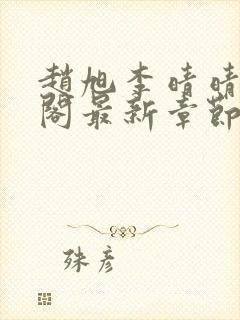 趙旭李晴晴
閣最新章節
殊彥